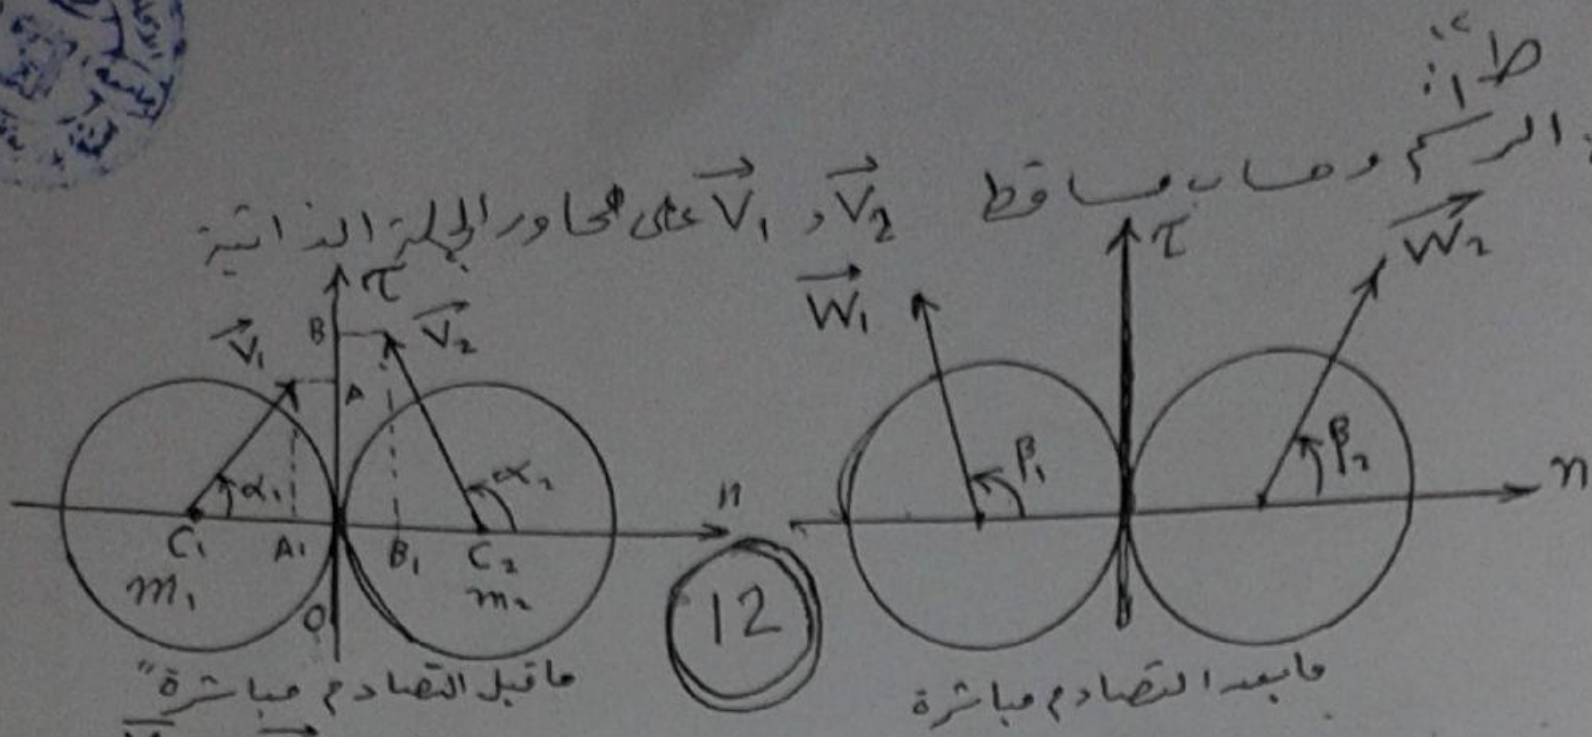 ط١:
الرسم وحساب مساقط V₁ , V₂ على محاور الجملة الذاتية
τ
B
V₁
V₂
A
α₁
α₂
n
C₁
A₁
B₁
C₂
m₁
m₂
O
ما قبل التصادم مباشرة"
12
τ
W₁
W₂
β₁
β₂
n
ما بعد التصادم مباشرة